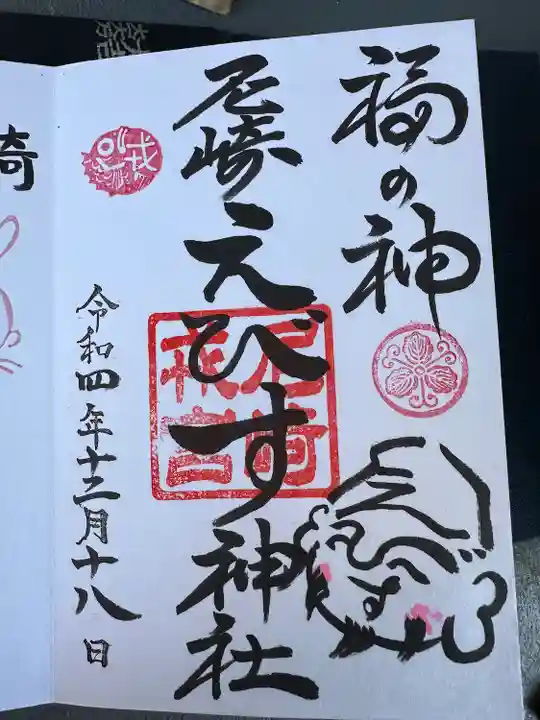 福の神
えべす
尼崎えびす神社
尼崎
戎宮
令和四年十二月十八日
崎